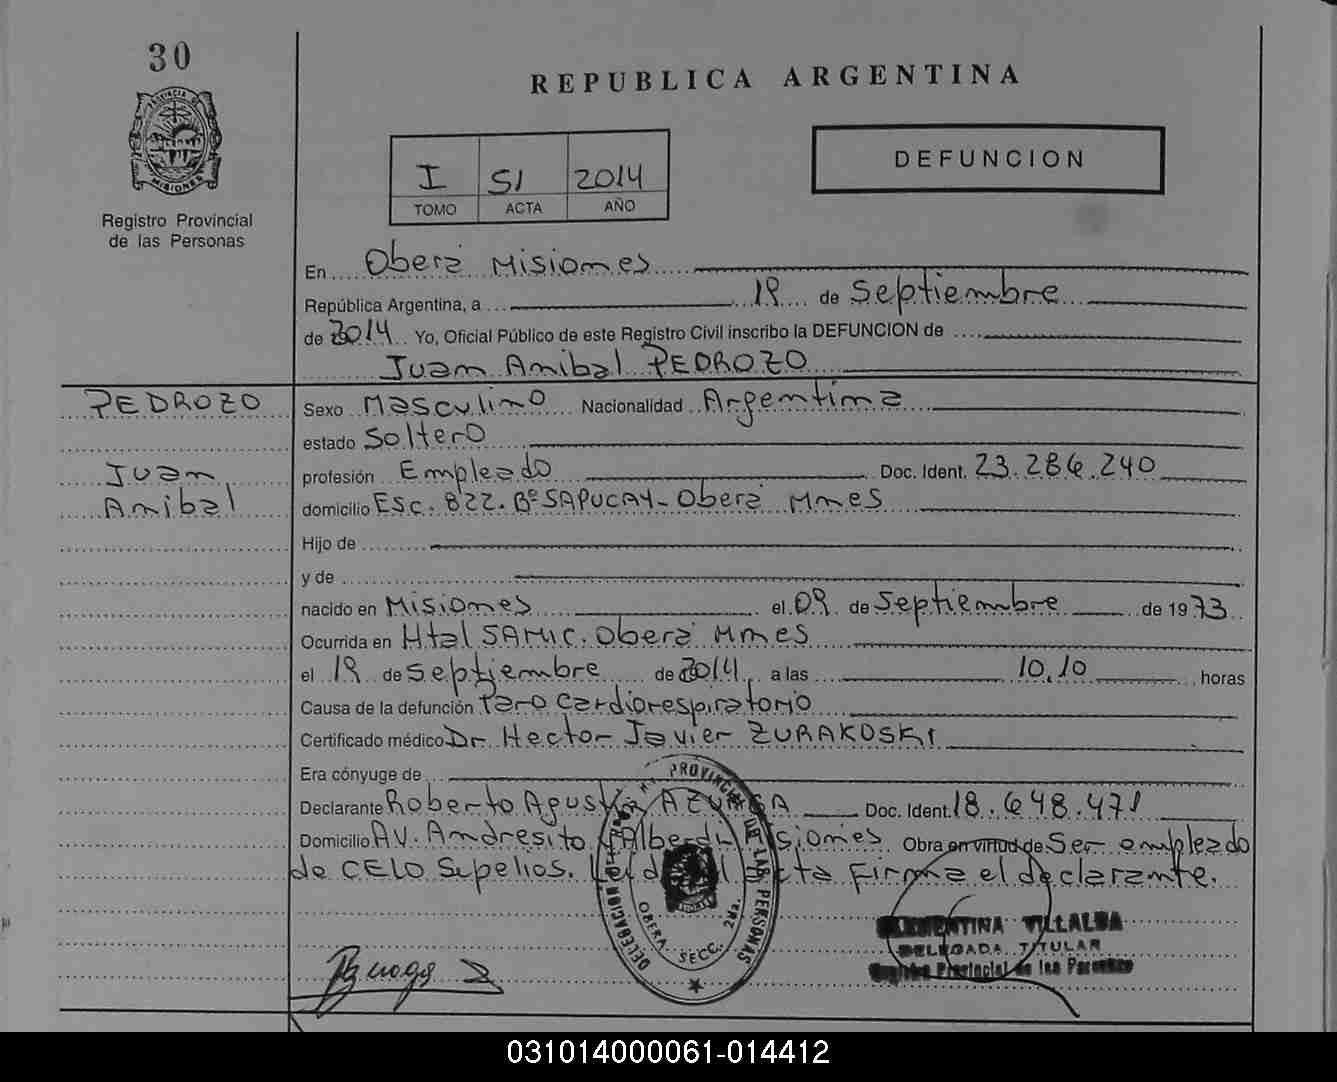 30
REPUBLICA ARGENTINA
PROVINCIA DE
MISIONES
Registro Provincial
de las Personas
I 51 2014
TOMO ACTA AÑO
DEFUNCION
En Oberá Misiones
República Argentina, a 19 de Septiembre
de 2014 Yo, Oficial Público de este Registro Civil inscribo la DEFUNCION de
Juan Anibal PEDROZO
PEDROZO
Juan
Anibal
Sexo Masculino Nacionalidad Argentina
estado Soltero
profesión Empleado Doc. Ident. 23.286.240
domicilio Esc. 822. Bº SAPUCAY - Oberá Mnes
Hijo de
y de
nacido en Misiones el 09 de Septiembre de 1973
Ocurrida en Htal SAMIC. Oberá Mnes
el 19 de Septiembre de 2014 a las 10,10 horas
Causa de la defunción Paro Cardiorespiratorio
Certificado médico Dr Hector Javier ZURAKOSKI
Era cónyuge de
Declarante Roberto Agustín Doc. Ident. 18.648.471
Domicilio AV. Andresito Alberdi Misiones Obra en virtud de Ser empleado
de CELO Sepelios. Leída el Acta Firma el declarante.
PROVINCIAL DE LAS PERSONAS
DELEGACION
OBERA SECC. 2da.
CLEMENTINA VILLALBA
DELEGADA TITULAR
Registro Provincial de las Personas
031014000061-014412